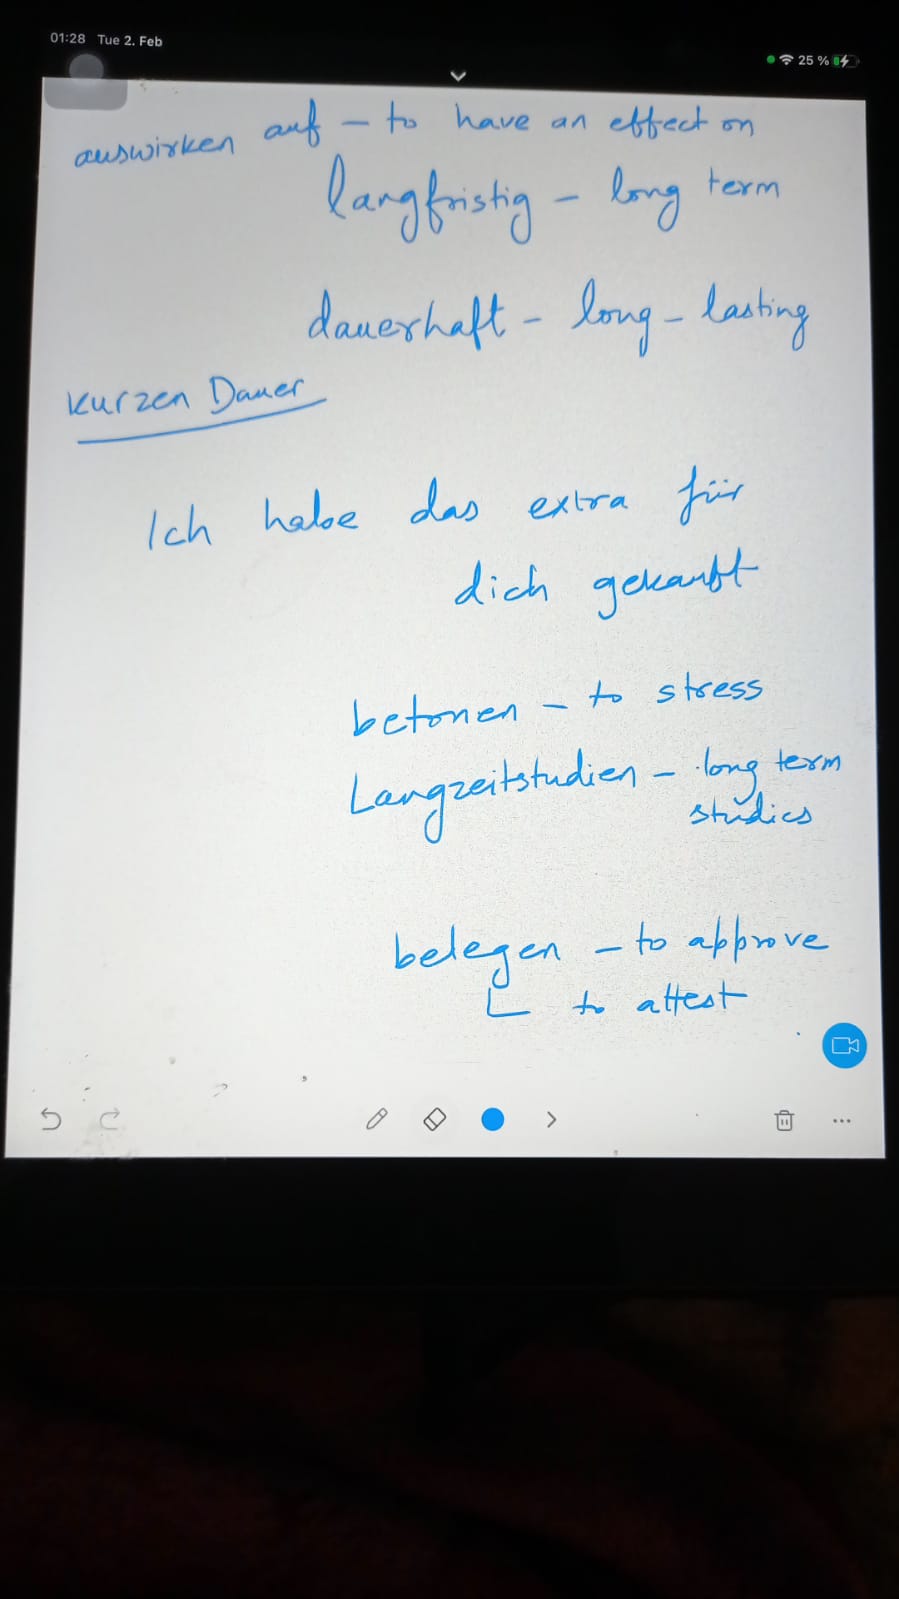 01:28 Tue 2. Feb
25 %
auswirken auf – to have an effect on
langfristig – long term
dauerhaft – long-lasting
kurzen Dauer
Ich habe das extra für
dich gekauft
betonen – to stress
Langzeitstudien – long term
studies
belegen – to approve
to attest